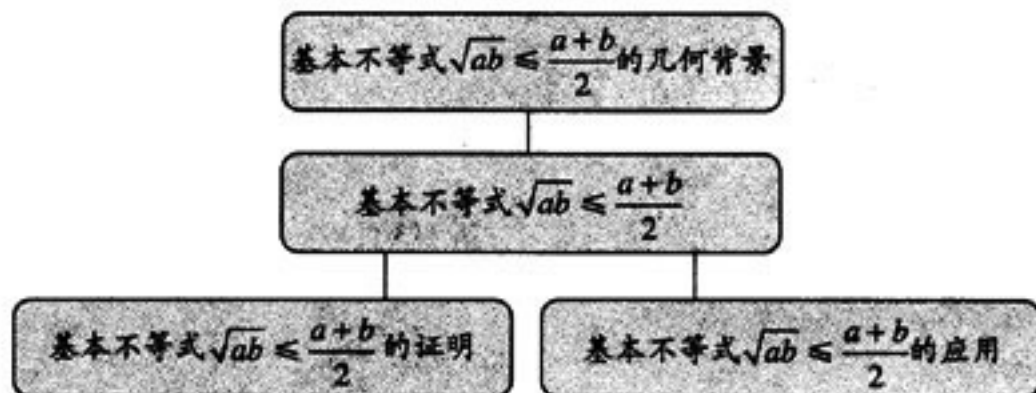 基本不等式√ab ≤ (a+b)/2 的几何背景
基本不等式√ab ≤ (a+b)/2
基本不等式√ab ≤ (a+b)/2 的证明
基本不等式√ab ≤ (a+b)/2 的应用